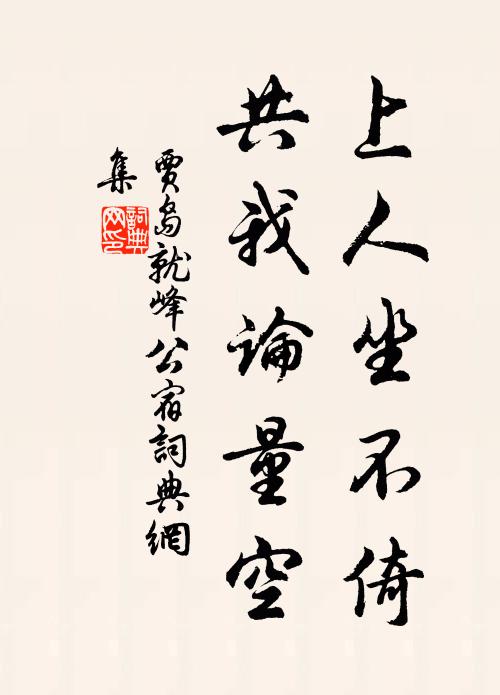 上人坐不倚
共我論量空
賈島就峰公宿詞典網
集
詞典
网印